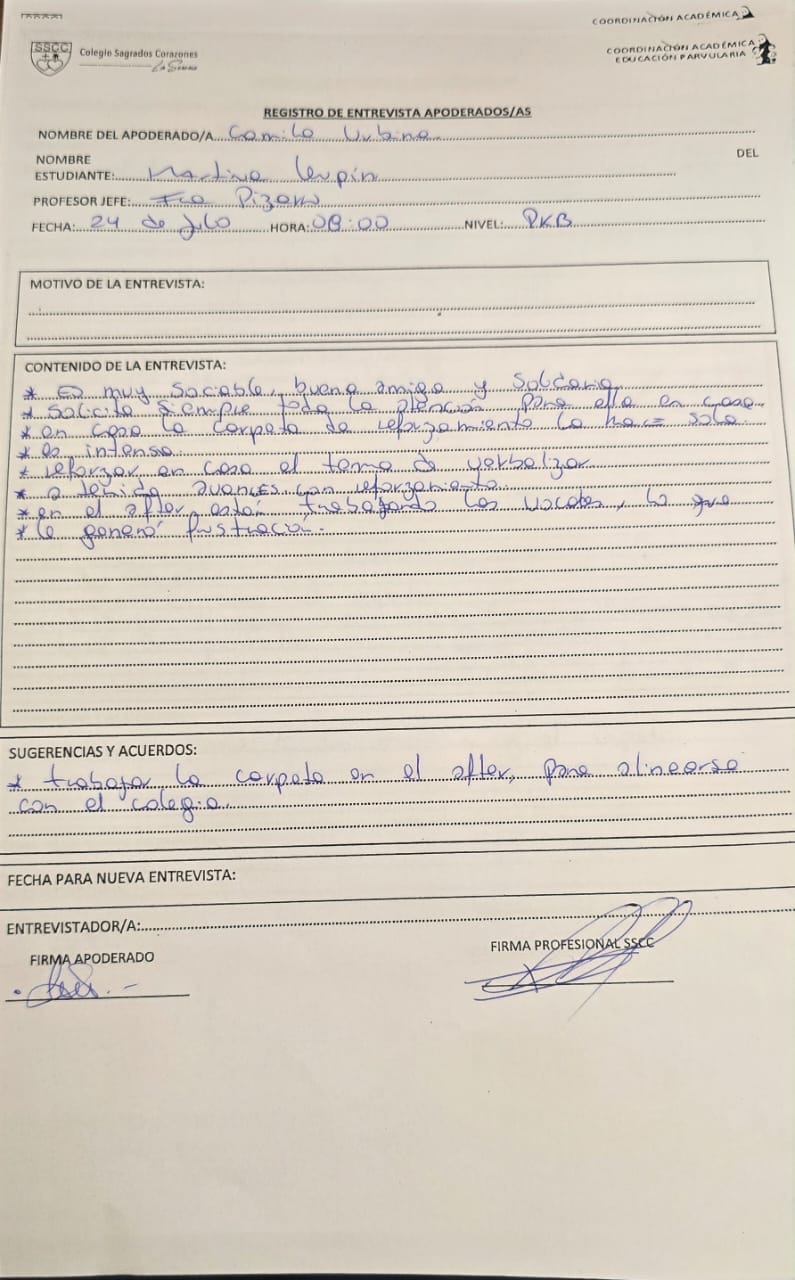 COORDINACIÓN ACADÉMICA
SSCC
Colegio Sagrados Corazones
La Serena
COORDINACIÓN ACADÉMICA
EDUCACIÓN PARVULARIA
REGISTRO DE ENTREVISTA APODERADOS/AS
NOMBRE DEL APODERADO/A Camila Urbina
NOMBRE DEL
ESTUDIANTE: Martina
PROFESOR JEFE: Fca Pizarro
FECHA: 24 de Julio HORA: 08:00 NIVEL: PKB
MOTIVO DE LA ENTREVISTA:
CONTENIDO DE LA ENTREVISTA:
* Es muy sociable, buena amiga y solidaria
* solicita siempre toda la atención para ella en casa
* en casa la carpeta de reforzamiento la hace sola.
* es intensa
* reforzar en casa el tema de verbalizar
* a tenido avances con reforzamiento
* en el after están trabajando las vocales, lo que
* le generó frustración.
SUGERENCIAS Y ACUERDOS:
* trabajar la carpeta en el after, para alinearse
con el colegio
FECHA PARA NUEVA ENTREVISTA:
ENTREVISTADOR/A:
FIRMA APODERADO FIRMA PROFESIONAL SSCC